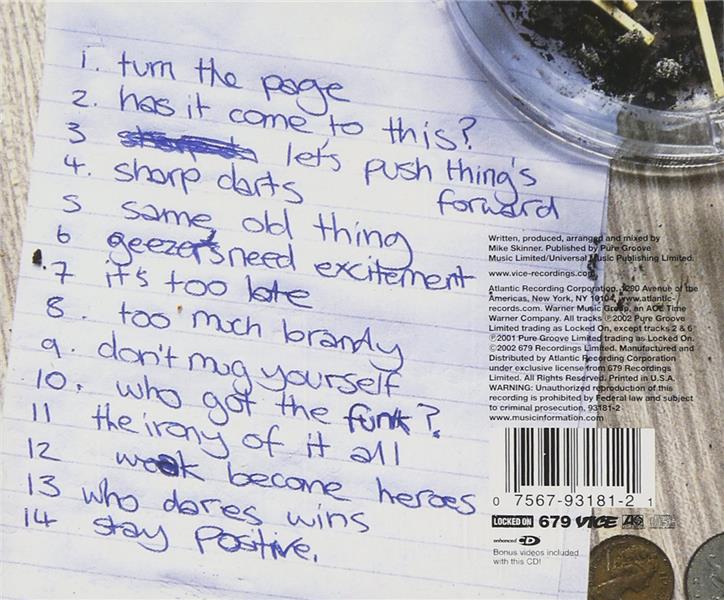 1. turn the page
2. has it come to this?
3 let's push thing's
forward
4. sharp darts
5 same old thing
6 geezers need excitement
7 it's too late
8. too much brandy
9. don't mug yourself
10. who got the funk?
11 the irony of it all
12 weak become heroes
13 who dares wins
14 stay positive.
Written, produced, arranged and mixed by
Mike Skinner. Published by Pure Groove
Music Limited/Universal Music Publishing Limited.
www.vice-recordings.com
Atlantic Recording Corporation, 1290 Avenue of the
Americas, New York, NY 10104. www.atlantic-
records.com. Warner Music Group, an AOL Time
Warner Company. All tracks ℗2002 Pure Groove
Limited trading as Locked On, except tracks 2 & 6
℗2001 Pure Groove Limited trading as Locked On.
©2002 679 Recordings Limited. Manufactured and
Distributed by Atlantic Recording Corporation
under exclusive license from 679 Recordings
Limited. All Rights Reserved. Printed in U.S.A.
WARNING: Unauthorized reproduction of this
recording is prohibited by Federal law and subject
to criminal prosecution. 93181-2
www.musicinformation.com
0 7567-93181-2 1
LOCKED ON 679 VICE
enhanced CD
Bonus videos included
with this CD!